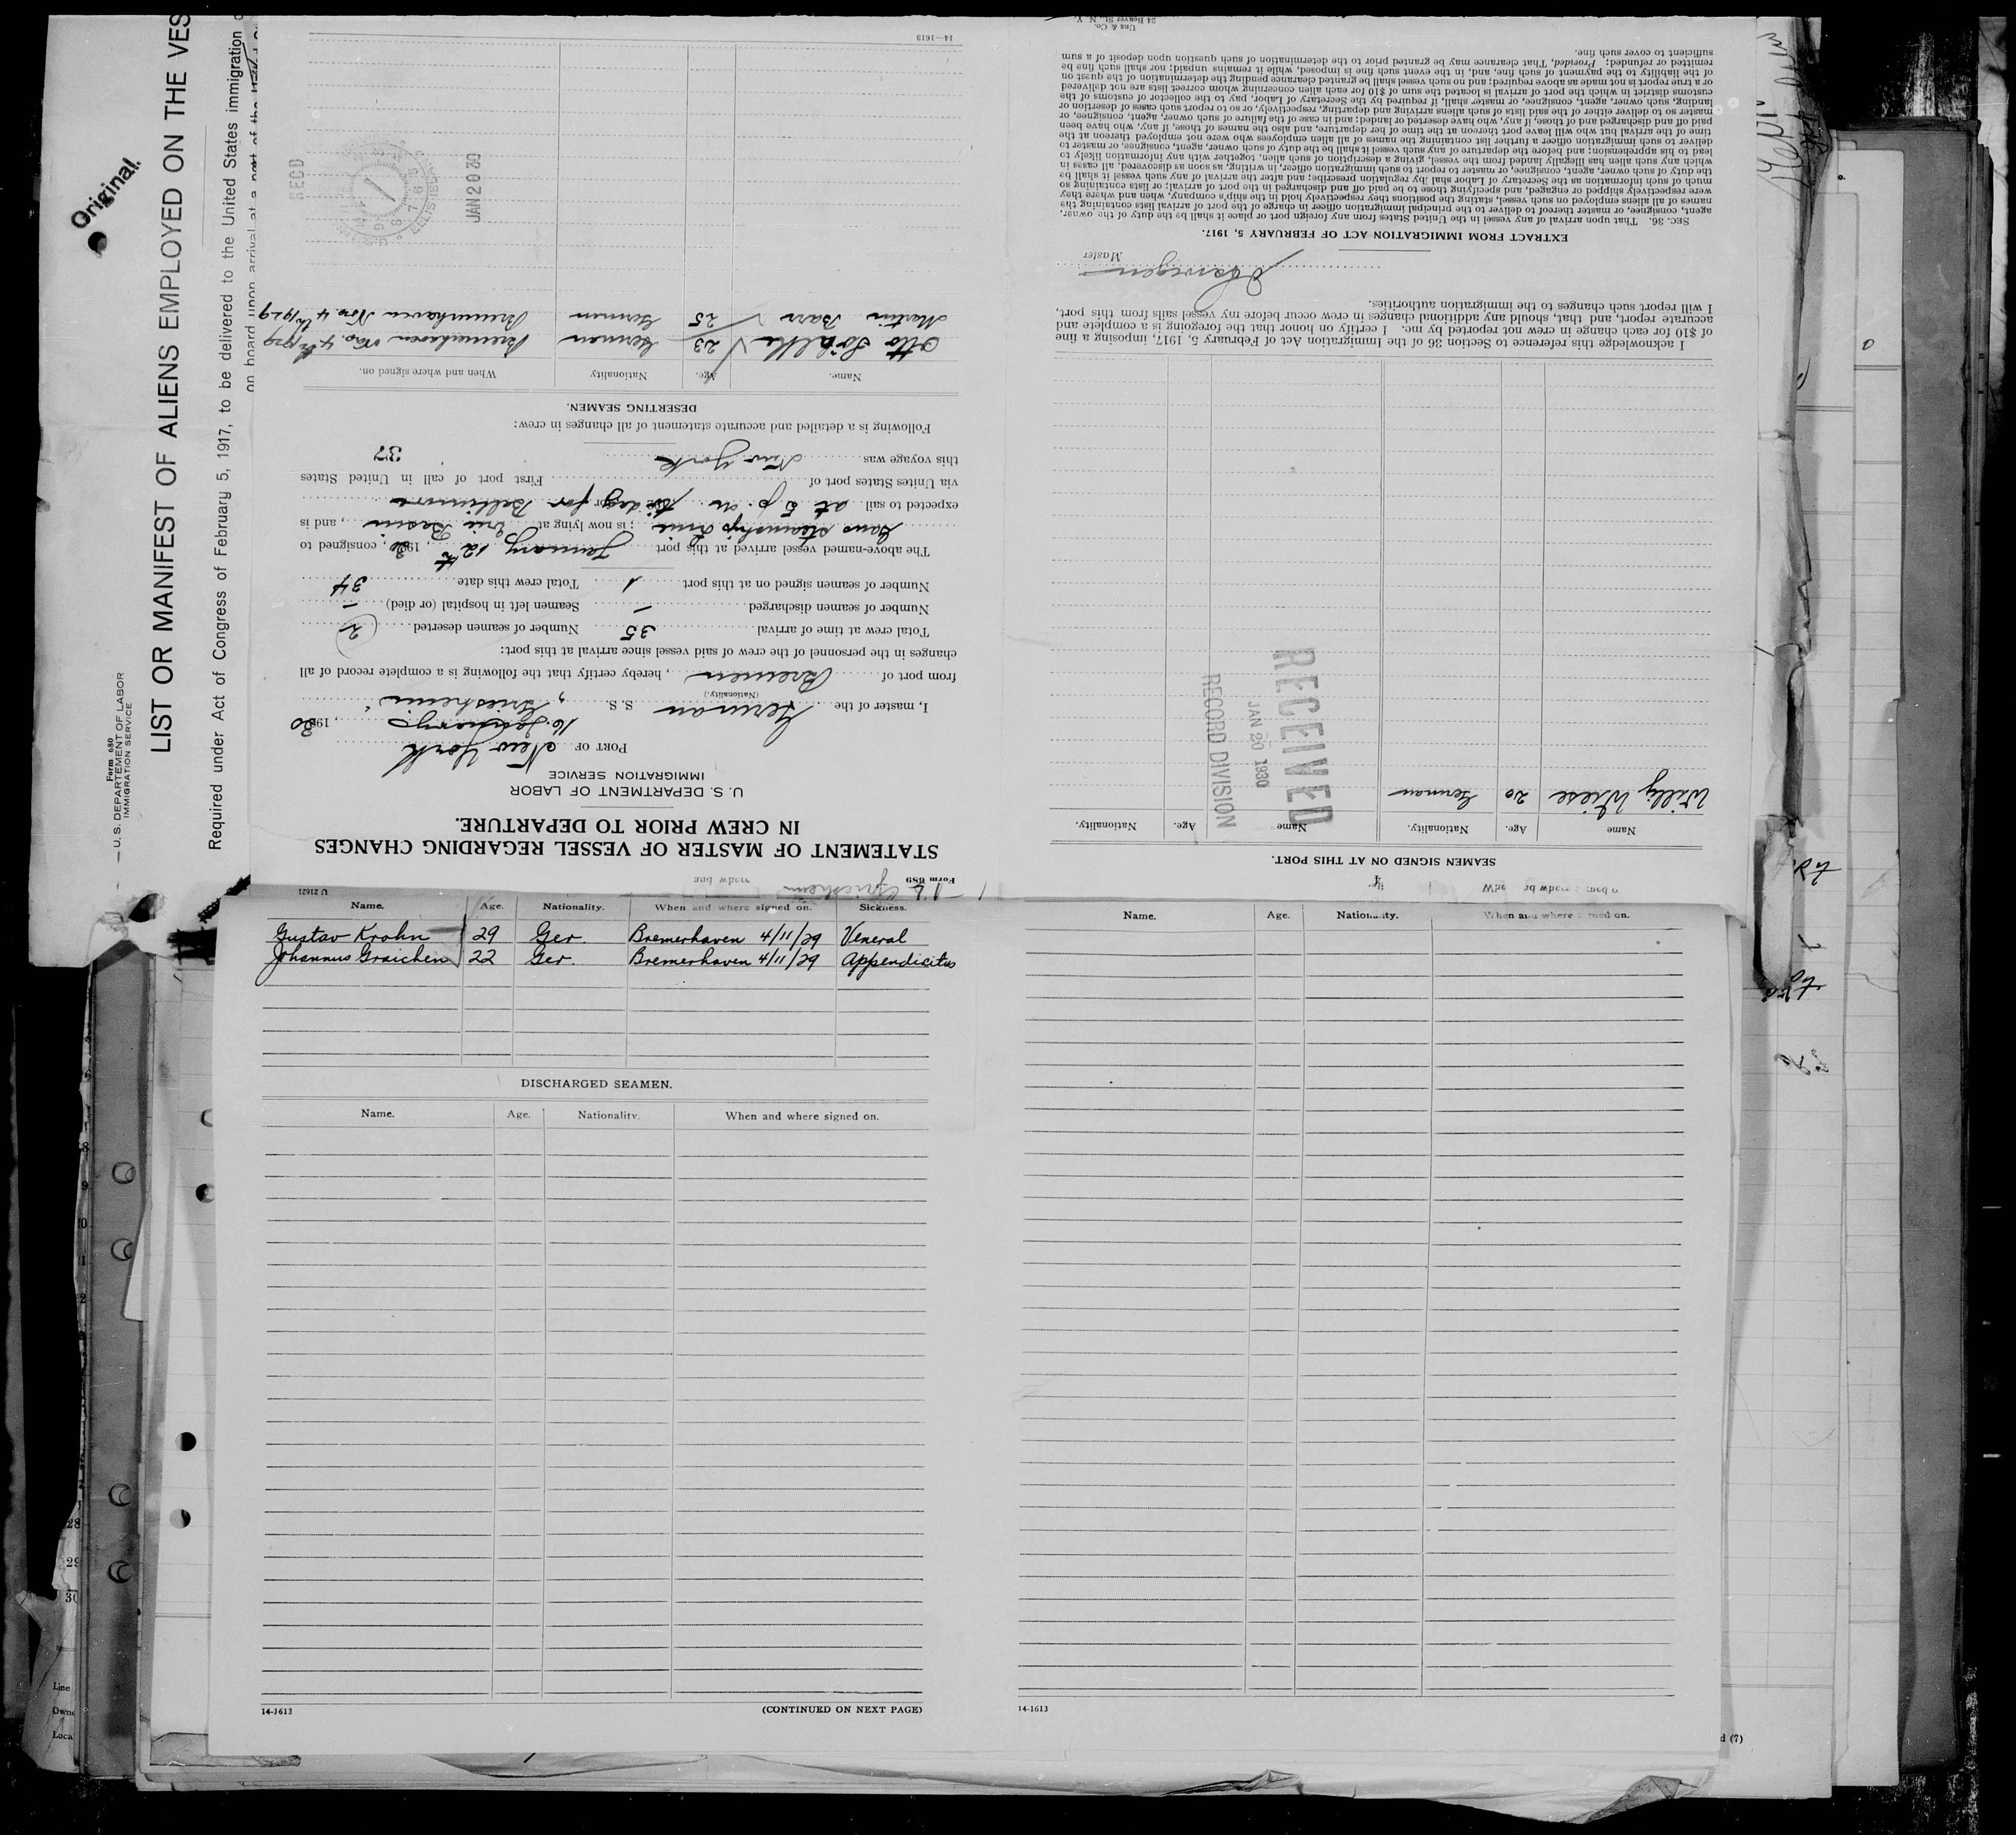 Original.
Form 680
U. S. DEPARTEMENT OF LABOR
IMMIGRATION SERVICE
LIST OR MANIFEST OF ALIENS EMPLOYED ON THE VES
Required under Act of Congress of February 5, 1917, to be delivered to the United States immigration
on board upon arrival at a port of the
Form 689
STATEMENT OF MASTER OF VESSEL REGARDING CHANGES
IN CREW PRIOR TO DEPARTURE.
U. S. DEPARTMENT OF LABOR
IMMIGRATION SERVICE
PORT OF New York
16. January, 1930
I, master of the German S. S. "Griesheim"
(Nationality.)
from port of Bremen, hereby certify that the following is a complete record of all
changes in the personnel of the crew of said vessel since arrival at this port:
Total crew at time of arrival 35 Number of seamen deserted 2
Number of seamen discharged — Seamen left in hospital (or died) —
Number of seamen signed on at this port 1 Total crew this date 34
The above-named vessel arrived at this port January 12th, 1930, consigned to
Gans Steamship Line; is now lying at Erie Basin, and is
expected to sail at 5 p. m. to day for Baltimore
via Unites States port of First port of call in United States
this voyage was New York 37
Following is a detailed and accurate statement of all changes in crew:
DESERTING SEAMEN.
Name. Age. Nationality When and where signed on.
Otto 23 German Bremerhaven Nov. 4th 1929
Martin Barr 25 German Bremenhaven Nov. 4th 1929
REC'D
JAN 20 30
14—1613
SEAMEN SIGNED ON AT THIS PORT.
Name Age. Nationality. Name Age. Nationality.
Willy Wiese 20 German
RECEIVED
JAN 20 1930
RECORD DIVISION
I acknowledge this reference to Section 36 of the Immigration Act of February 5, 1917, imposing a fine
of $10 for each change in crew not reported by me. I certify on honor that the foregoing is a complete and
accurate report, and that, should any additional changes in crew occur before my vessel sails from this port,
I will report such changes to the immigration authorities.
Master
EXTRACT FROM IMMIGRATION ACT OF FEBRUARY 5, 1917.
SEC. 36. That upon arrival of any vessel in the United States from any foreign port or place it shall be the duty of the owner,
agent, consignee, or master thereof to deliver to the principal immigration officer in charge of the port of arrival lists containing the
names of all aliens employed on such vessel, stating the positions they respectively hold in the ship's company, when and where they
were respectively shipped or engaged, and specifying those to be paid off and discharged in the port of arrival; or lists containing so
much of such information as the Secretary of Labor shall by regulation prescribe; and after the arrival of any such vessel it shall be
the duty of such owner, agent, consignee, or master to report to such immigration officer, in writing, as soon as discovered, all cases in
which any such alien has illegally landed from the vessel, giving a description of such alien, together with any information likely to
lead to his apprehension; and before the departure of any such vessel it shall be the duty of such owner, agent, consignee, or master to
deliver to such immigration officer a further list containing the names of all alien employees who were not employed thereon at the
time of the arrival but who will leave port thereon at the time of her departure, and also the names of those, if any, who have been
paid off and discharged and of those, if any, who have deserted or landed; and in case of the failure of such owner, agent, consignee, or
master so to deliver either of the said lists of such aliens arriving and departing, respectively, or so to report such cases of desertion or
landing, such owner, agent, consignee, or master, shall, if required by the Secretary of Labor, pay to the collector of customs of the
customs district in which the port of arrival is located the sum of $10 for each alien concerning whom correct lists are not delivered
or a true report is not made as above required; and no such vessel shall be granted clearance pending the determination of the quest on
of the liability to the payment of such fine, and, in the event such fine is imposed, while it remains unpaid; nor shall such fine be
remitted or refunded: Provided, That clearance may be granted prior to the determination of such question upon deposit of a sum
sufficient to cover such fine.
Unz & Co.
24 Beaver St., N. Y.
U 21621
Name. Age. Nationality. When and where signed on. Sickness.
Gustav Krohn 29 Ger. Bremerhaven 4/11/29 Veneral
Johannus Graichen 22 Ger. Bremerhaven 4/11/29 Appendicitus
DISCHARGED SEAMEN.
Name. Age. Nationality. When and where signed on.
14-1613 (CONTINUED ON NEXT PAGE)
Name. Age. Nationality. When and where signed on.
14-1613
d (7)
28
29
30
Line
Owne
Loca